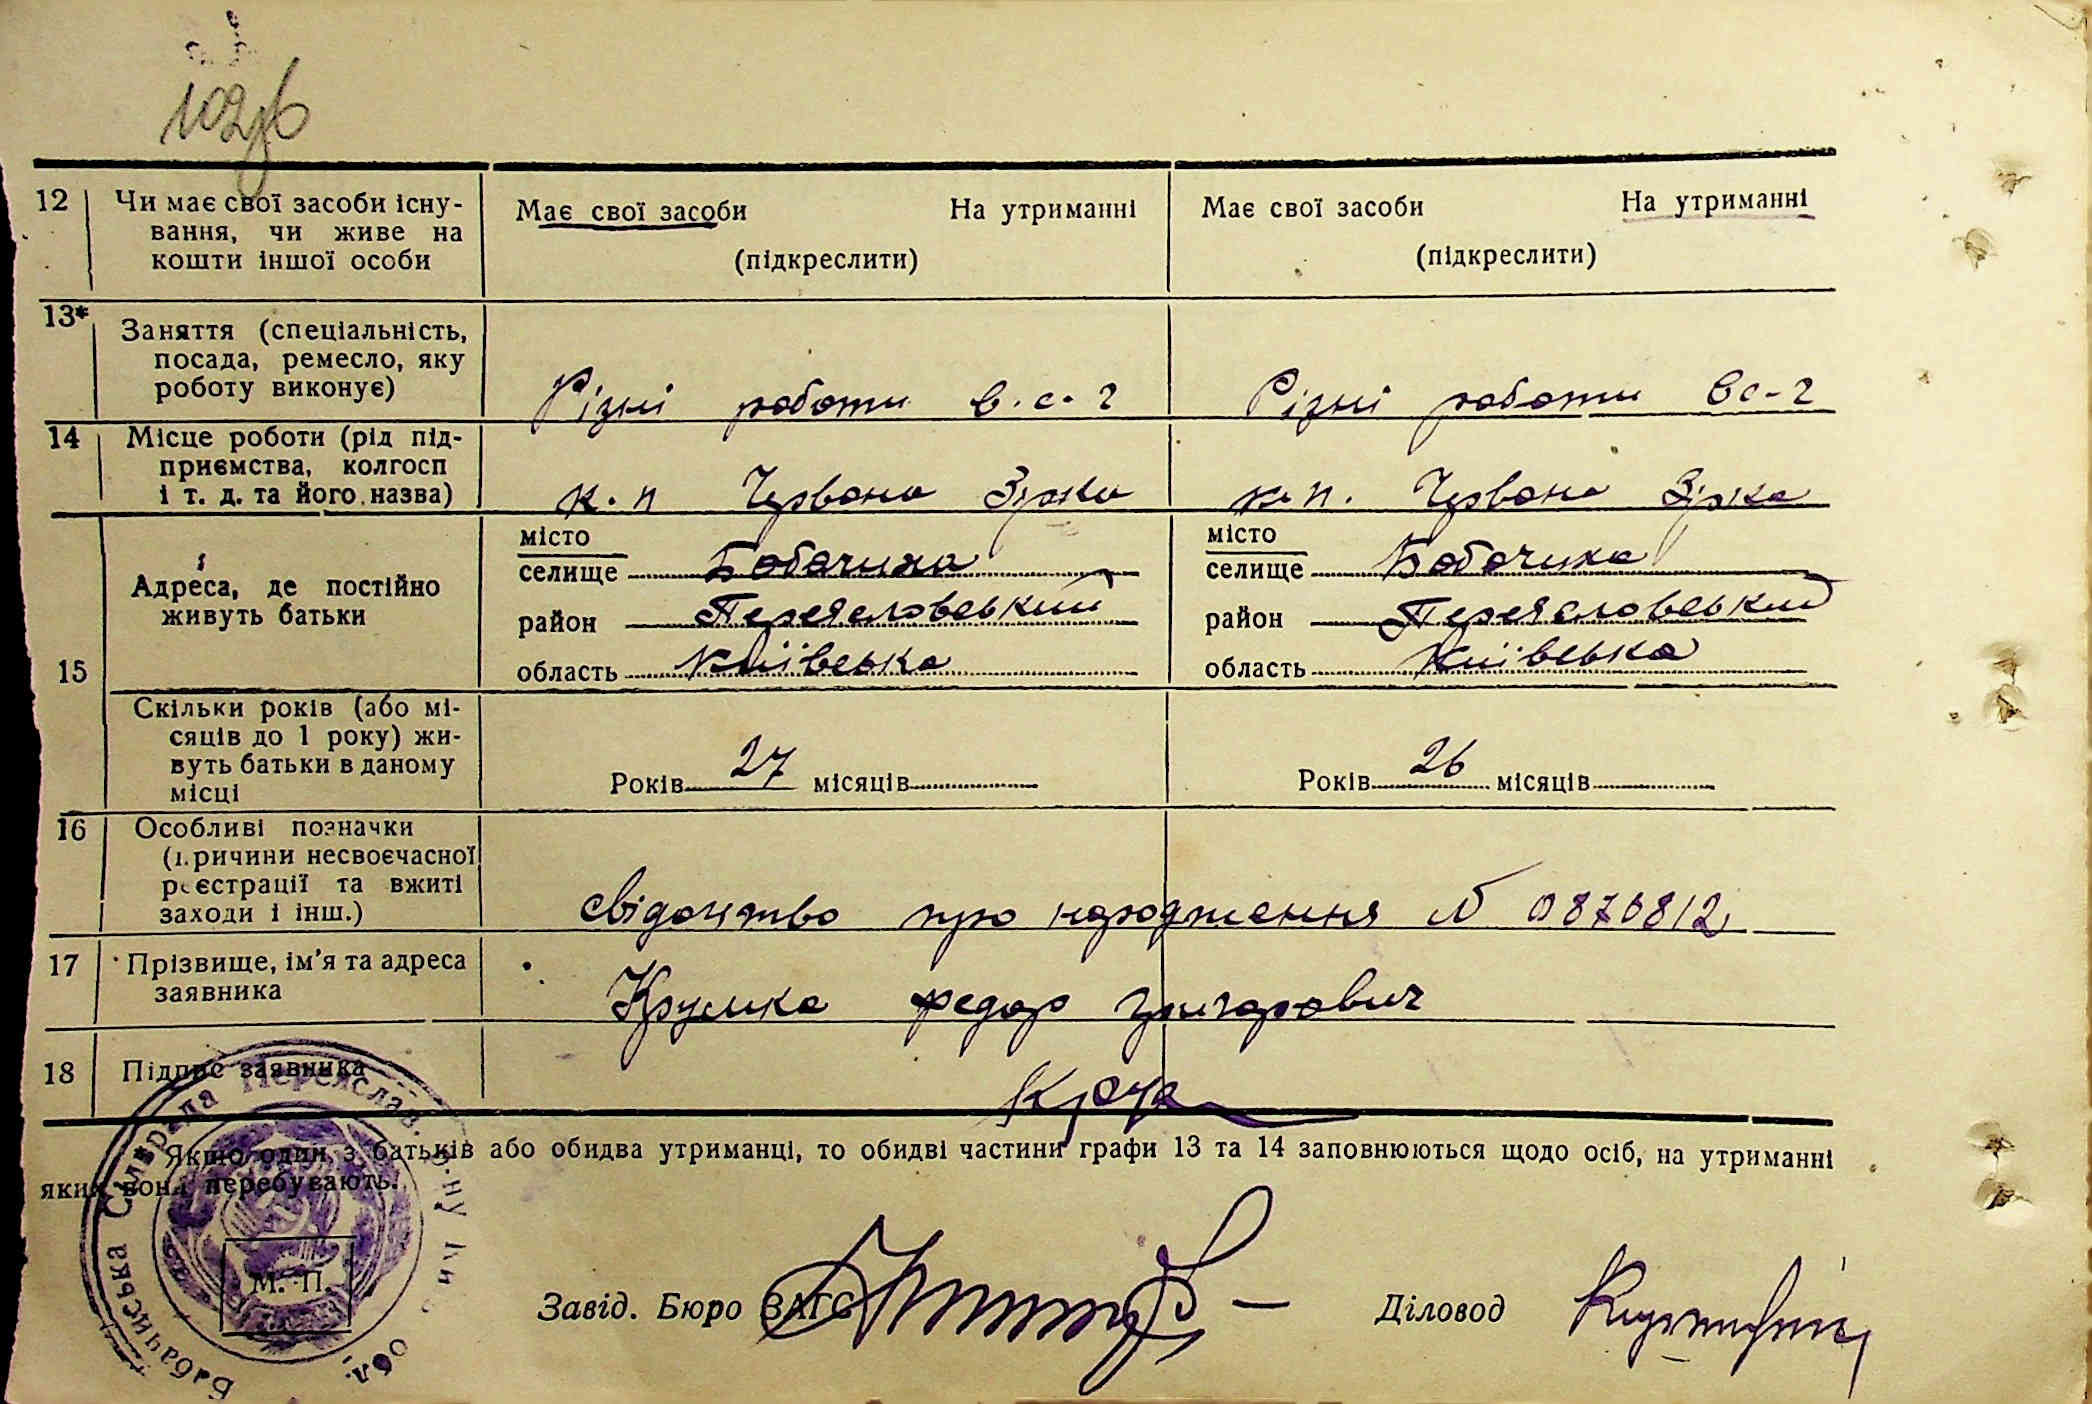 102зв
12 Чи має свої засоби існу-
вання, чи живе на
кошти іншої особи
Має свої засоби На утриманні
(підкреслити)
Має свої засоби На утриманні
(підкреслити)
13* Заняття (спеціальність,
посада, ремесло, яку
роботу виконує)
Різні роботи в.с-г
Різні роботи вс-г
14 Місце роботи (рід під-
приємства, колгосп
і т. д. та його назва)
к.п Червона Зірка
к.п. Червона Зірка
15
Адреса, де постійно
живуть батьки
місто
селище Бобачиха
район Переяславський
область Київська
місто
селище Бобачиха
район Переяславський
область Київська
Скільки років (або мі-
сяців до 1 року) жи-
вуть батьки в даному
місці
Років 27 місяців
Років 26 місяців
16 Особливі позначки
(причини несвоєчасної
реєстрації та вжиті
заходи і інш.)
свідоцтво про народження № 0876812
17 Прізвище, ім'я та адреса
заявника
федор григорович
18 Підпис заявника
Якщо один з батьків або обидва утриманці, то обидві частини графи 13 та 14 заповнюються щодо осіб, на утриманні
яких вони перебувають.
М. П.
Завід. Бюро ЗАГС
Діловод